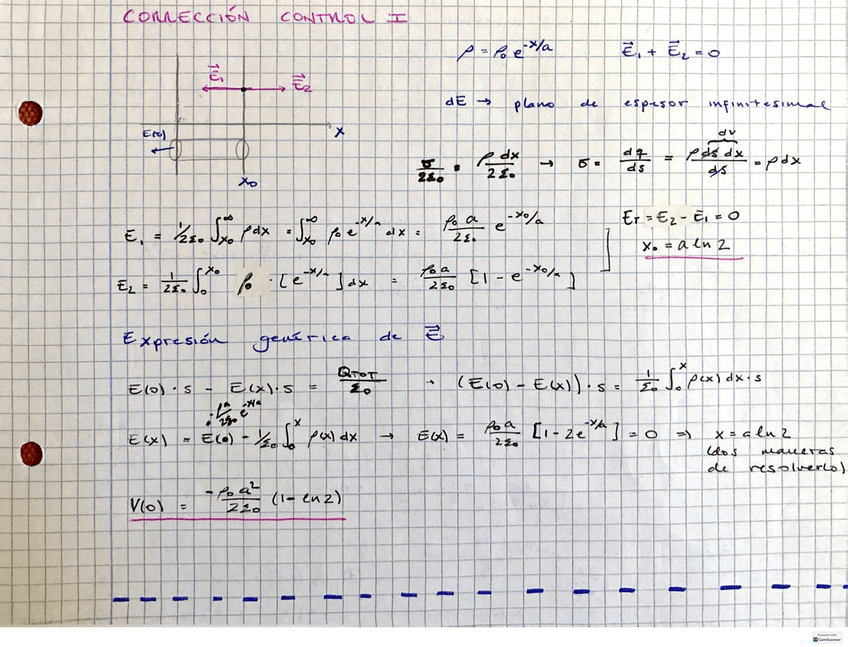 CORRECCIÓN CONTROL I
ρ = ρ₀ e^(-x/a)    E⃗₁ + E⃗₂ = 0
E⃗₁    E⃗₂
dE → plano de espesor infinitesimal
E(0)    x
x₀
σ/2ε₀ = ρ dx/2ε₀ → σ = dq/ds = ρ ds dx/ds = ρ dx
dv
E₁ = 1/2ε₀ ∫_x₀^∞ ρ dx = ∫_x₀^∞ ρ₀ e^(-x/a) dx = ρ₀ a/2ε₀ e^(-x₀/a)
E_T = E₂ - E₁ = 0
x₀ = a ln 2
E₂ = 1/2ε₀ ∫_0^x₀ ρ₀ · [e^(-x/a)] dx = ρ₀ a/2ε₀ [1 - e^(-x₀/a)]
Expresión genérica de E⃗
E(0) · s - E(x) · s = Q_TOT/ε₀ → (E(0) - E(x)) · s = 1/ε₀ ∫_0^x ρ(x) dx · s
E(x) = E(0) - 1/ε₀ ∫_0^x ρ(x) dx → E(x) = ρ₀ a/2ε₀ [1 - 2e^(-x/a)] = 0 ⇒ x = a ln 2
(dos maneras
de resolverlo)
V(0) = -ρ₀ a²/2ε₀ (1 - ln 2)
Scanned with
CamScanner